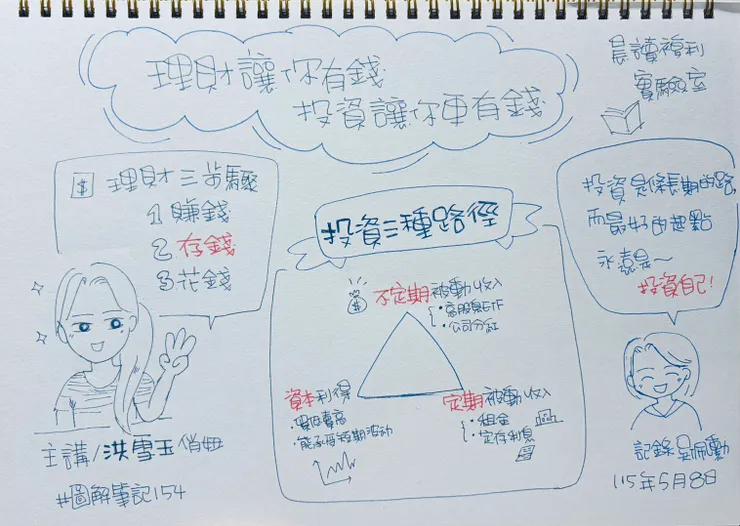 理財讓你有錢
投資讓你更有錢
晨讀複利
實驗室
$ 理財三步驟
1 賺錢
2 存錢
3 花錢
投資三種路徑
$ 不定期被動收入
・高股息ETF
・公司分紅
資本利得
・買低賣高
・能承受短期波動
定期被動收入
・租金
・定存利息
投資是條長期的路,
而最好的起點
永遠是~
投資自己!
主講/洪雪玉俏妞
#圖解筆記154
115年5月8日